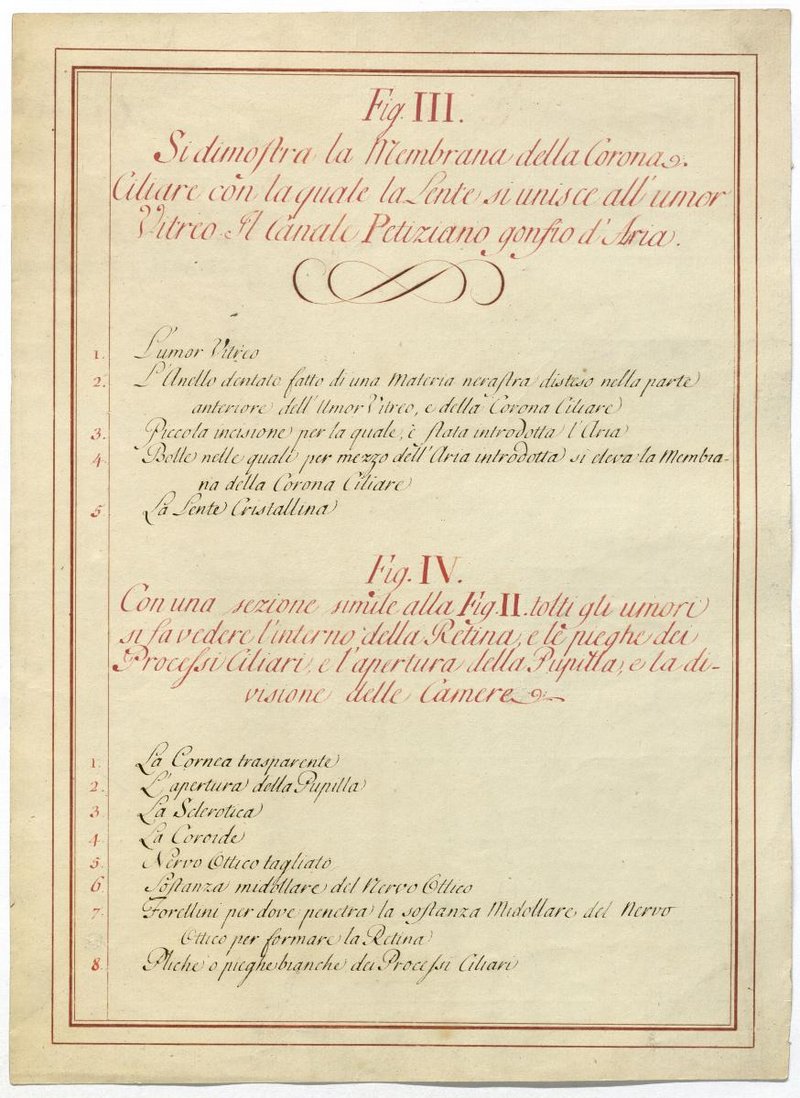 Fig. III.
Si dimostra la Membrana della Corona
Ciliare con la quale la Lente si unisce all' umor
Vitreo. Il Canale Petiziano gonfio d' Aria.
1. L'umor Vitreo
2. L'Anello dentato fatto di una Materia nerastra disteso nella parte
anteriore dell' Umor Vitreo, e della Corona Ciliare
3. Piccola incisione per la quale, è stata introdotta l'Aria
4. Bolle nelle quali per mezzo dell' Aria introdotta si eleva la Membra-
na della Corona Ciliare
5. La Lente Cristallina
Fig. IV.
Con una sezione simile alla Fig. II. tolti gli umori
si fa vedere l'interno della Retina, e le pieghe dei
Processi Ciliari, e l'apertura della Pupilla, e la di-
visione delle Camere
1. La Cornea trasparente
2. L'apertura della Pupilla
3. La Sclerotica
4. La Coroide
5. Nervo Ottico tagliato
6. Sostanza midollare del Nervo Ottico
7. Forellini per dove penetra la sostanza Midollare del Nervo
Ottico per formare la Retina
8. Pliche o pieghe bianche dei Processi Ciliari